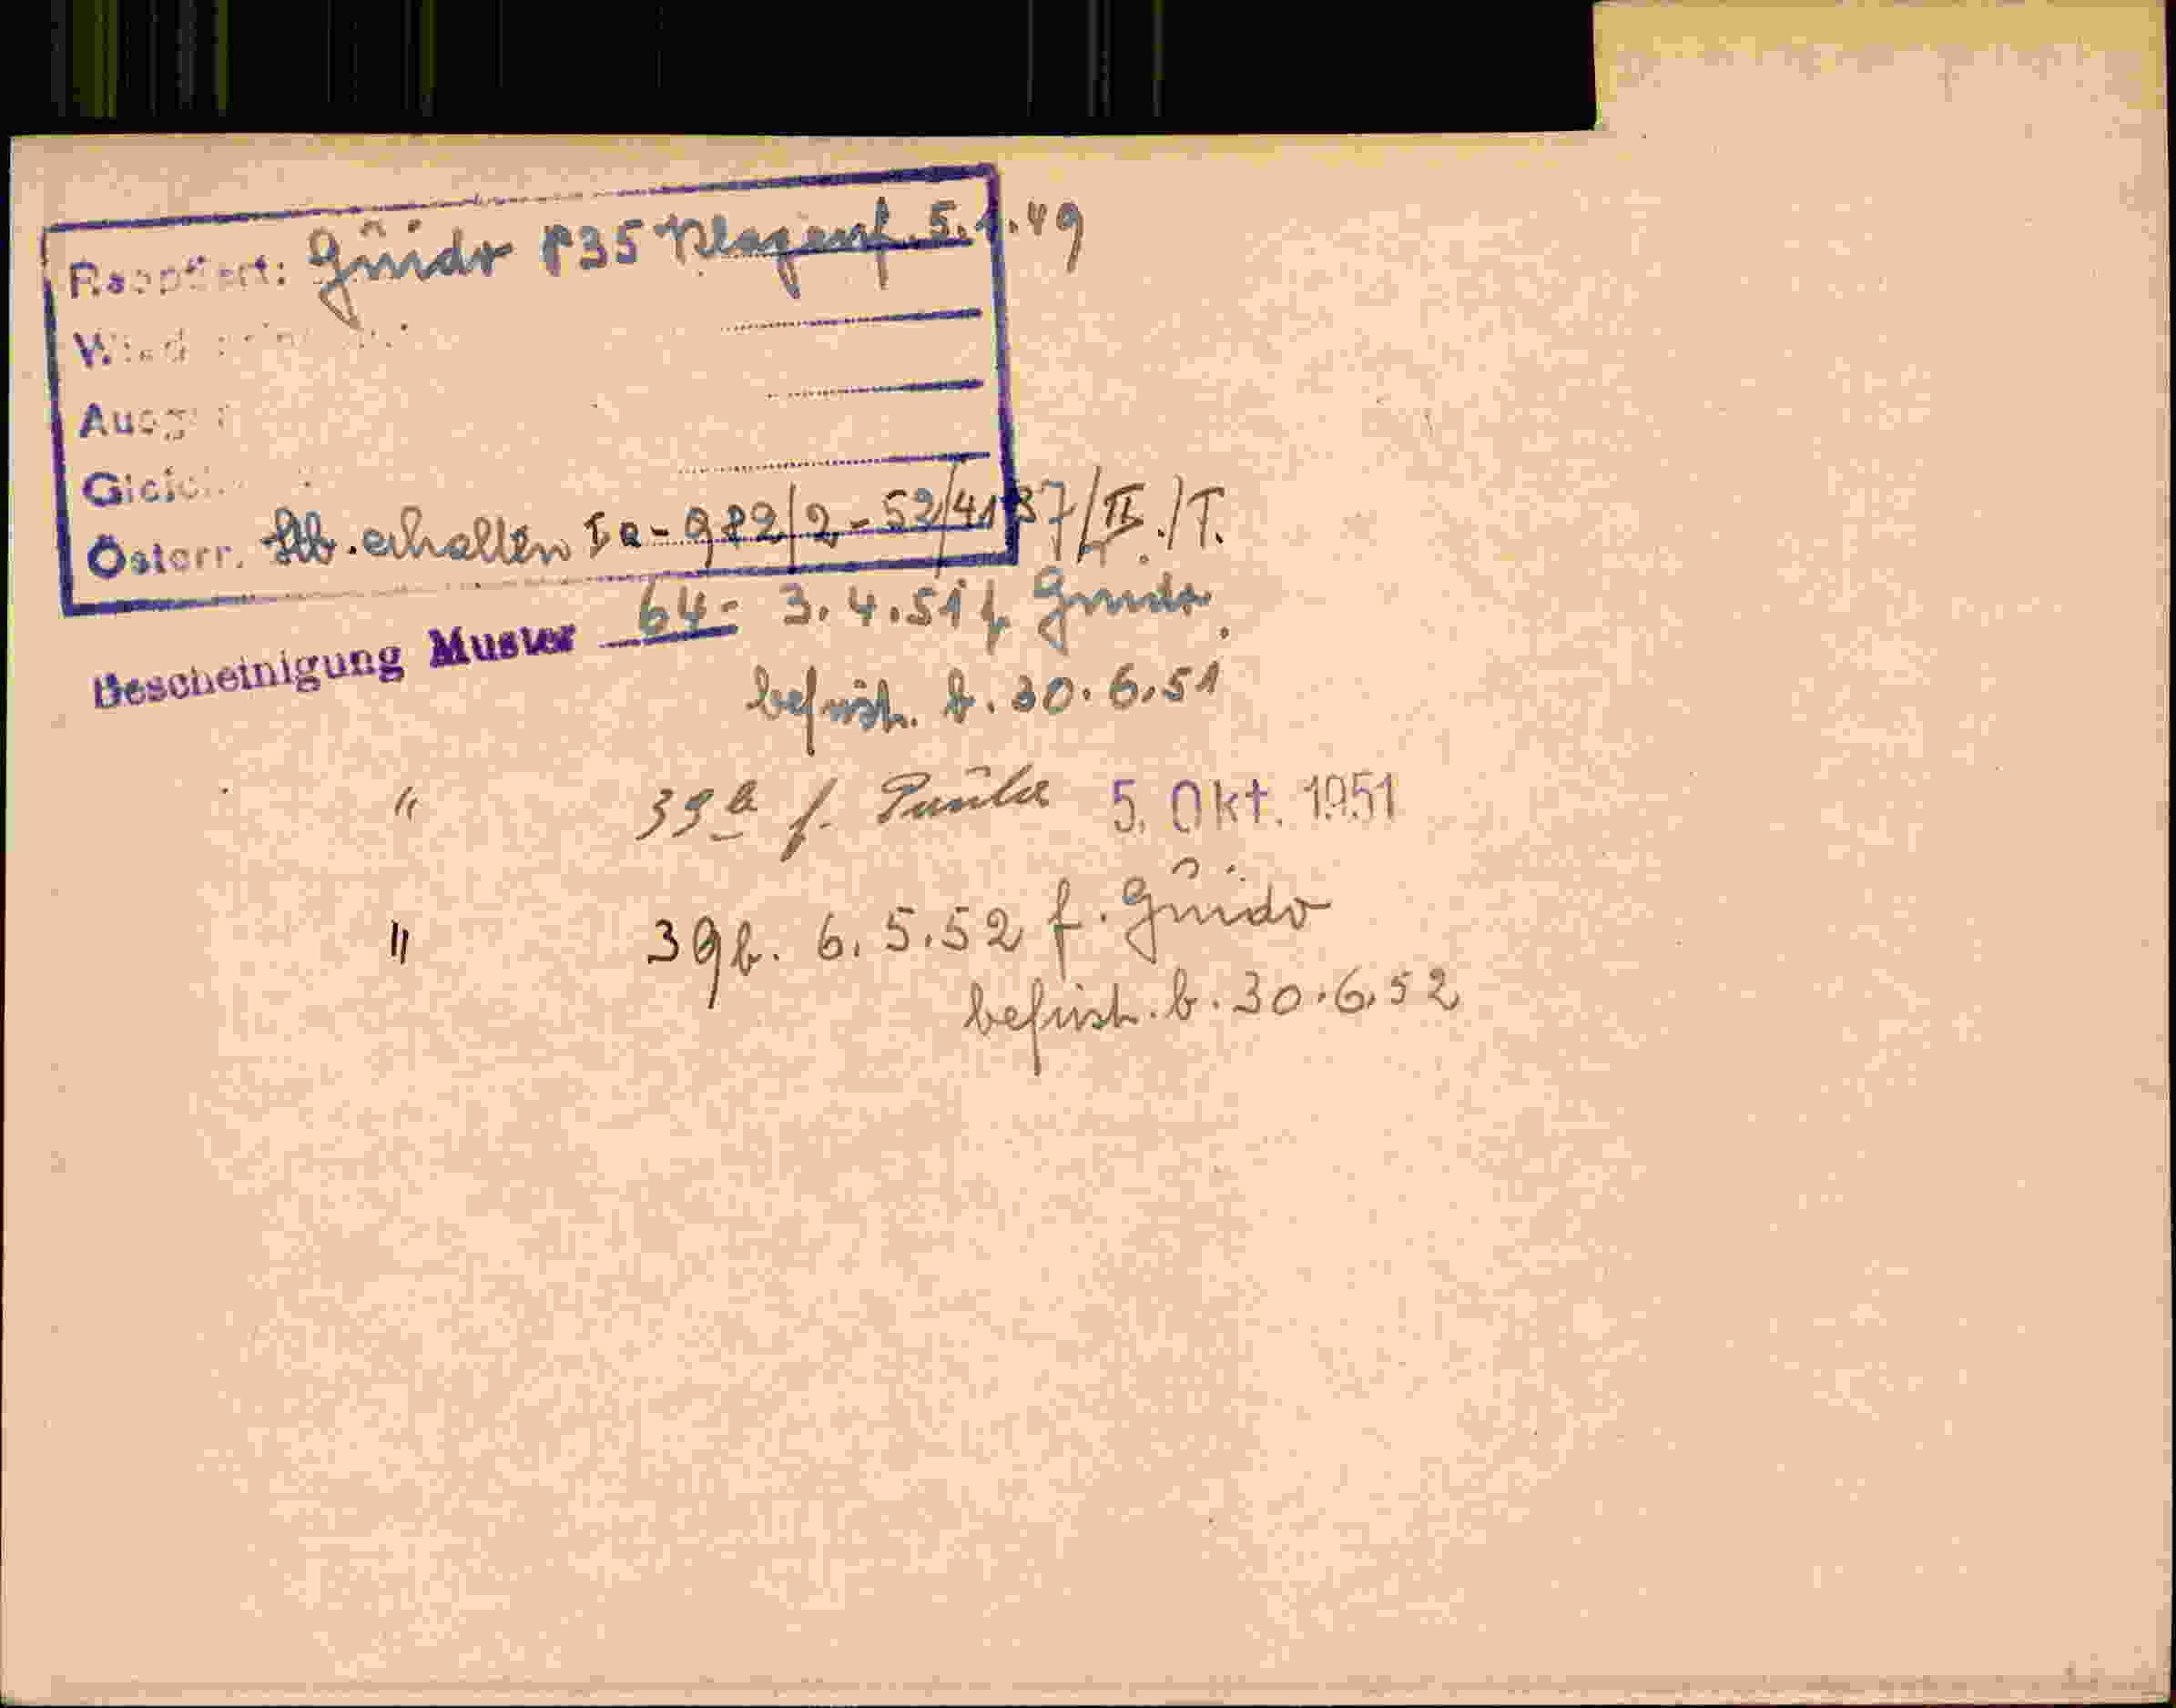 Reoptiert: Guido P35 Klagenf. 5.1.49
Wied
Ausg
Gleich
Österr. Stb. erhalten Ia-982/2-52/4137/II./T.
Bescheinigung Muster 64- 3.4.51 f. Guido
befrist. b. 30.6.51
" 39b f. Paula 5. Okt. 1951
" 39b. 6.5.52 f. Guido
befrist. b. 30.6.52